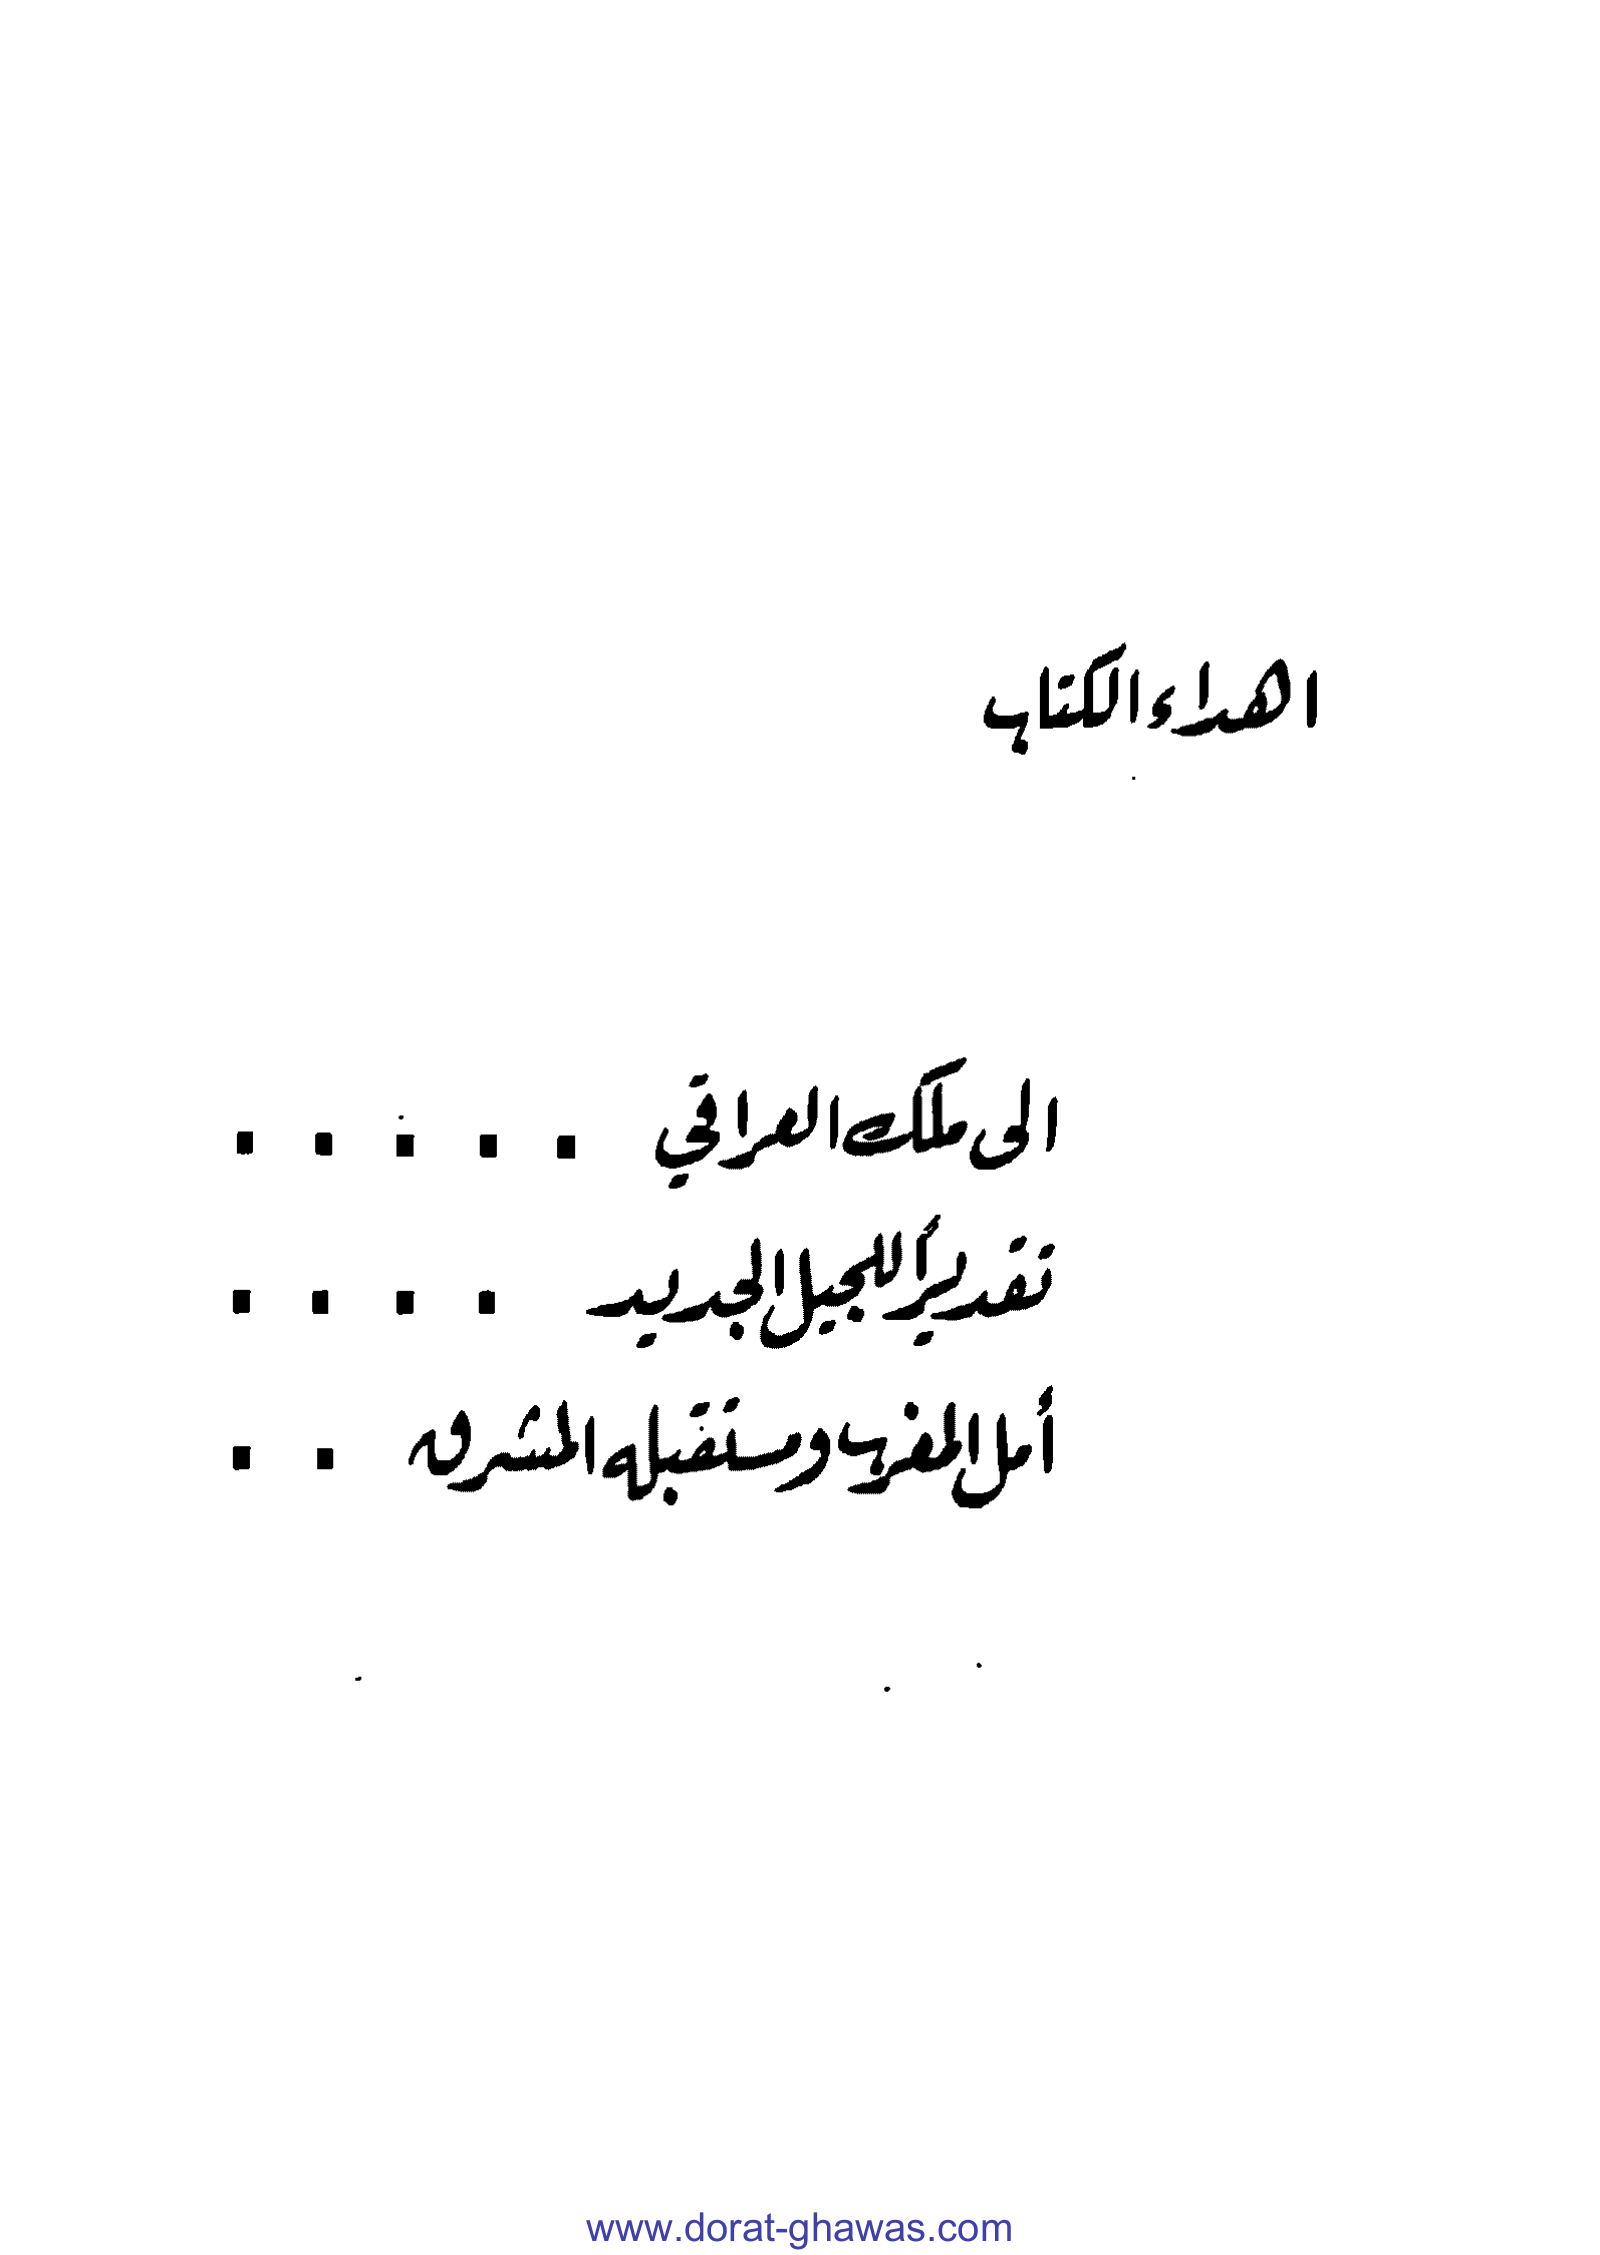 اهداء الكتاب
الى ملك العراقي . . . . .
تقديراً للجيل الجديد . . . .
أمل المغرب ومستقبله المشرق . .
www.dorat-ghawas.com